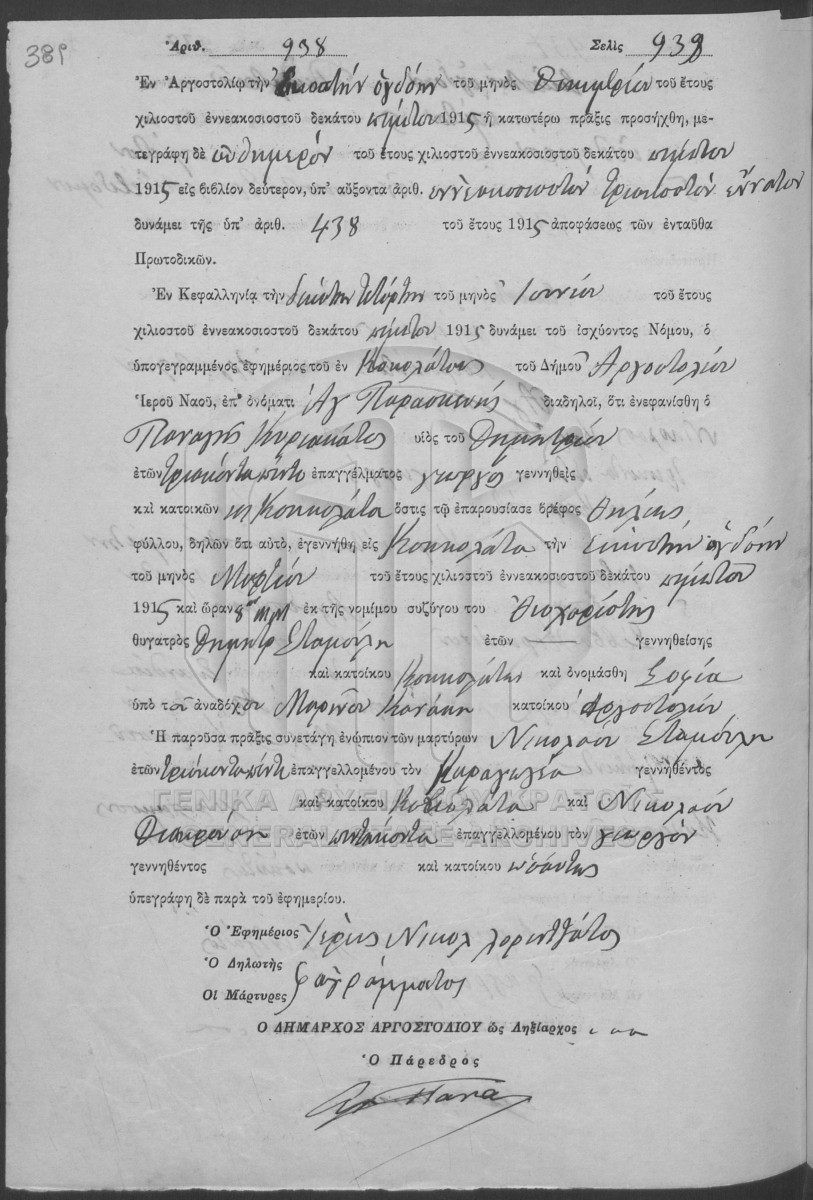 389
Ἀριθ. 938 Σελὶς 939
Ἐν Ἀργοστολίῳ τὴν εἰκοστὴν ὀγδόην τοῦ μηνὸς Δεκεμβρίου τοῦ ἔτους
χιλιοστοῦ ἐννεακοσιοστοῦ δεκάτου πέμπτου 1915 ἡ κατωτέρω πρᾶξις προσήχθη, με-
τεγράφη δὲ αὐθημερὸν τοῦ ἔτους χιλιοστοῦ ἐννεακοσιοστοῦ δεκάτου πέμπτου
1915 εἰς βιβλίον δεύτερον, ὑπ' αὔξοντα ἀριθ. ἐννεακοσιοστὸν τριακοστὸν ἔννατον
δυνάμει τῆς ὑπ' ἀριθ. 438 τοῦ ἔτους 1915 ἀποφάσεως τῶν ἐνταῦθα
Πρωτοδικῶν.
Ἐν Κεφαλληνίᾳ τὴν δεκάτην τετάρτην τοῦ μηνὸς Ἰουνίου τοῦ ἔτους
χιλιοστοῦ ἐννεακοσιοστοῦ δεκάτου πέμπτου 1915 δυνάμει τοῦ ἰσχύοντος Νόμου, ὁ
ὑπογεγραμμένος ἐφημέριος τοῦ ἐν Κοκολάτοις τοῦ Δήμου Ἀργοστολίου
Ἱεροῦ Ναοῦ, ἐπ' ὀνόματι Ἁγ Παρασκευῆς διαδηλοῖ, ὅτι ἐνεφανίσθη ὁ
Παναγῆς Κυριακάτος υἱὸς τοῦ Δημητρίου
ἐτῶν τριάκοντα πέντε ἐπαγγέλματος γεωργὸς γεννηθεὶς
καὶ κατοικῶν εἰς Κοκκολάτα ὅστις τῷ ἐπαρουσίασε βρέφος θήλεος
φύλλου, δηλῶν ὅτι αὐτὸ, ἐγεννήθη εἰς Κοκκολάτα τὴν εἰκοστὴν ὀγδόην
τοῦ μηνὸς Μαρτίου τοῦ ἔτους χιλιοστοῦ ἐννεακοσιοστοῦ δεκάτου πέμπτου
1915 καὶ ὥραν 8ην πμ ἐκ τῆς νομίμου συζύγου του Θεοχαρίστης
θυγατρὸς Δημητρ Σταμούλη ἐτῶν — γεννηθείσης
καὶ κατοίκου Κοκκολάτοις καὶ ὀνομάσθη Σοφία
ὑπὸ τοῦ ἀναδόχου Μαρίνου Κανάκη κατοίκου Ἀργοστολίου
Ἡ παροῦσα πρᾶξις συνετάγη ἐνώπιον τῶν μαρτύρων Νικολάου Σταμούλη
ἐτῶν τριάκοντα πέντε ἐπαγγελλομένου τὸν Καραγωγέα γεννηθέντος
ΓΕΝΙΚΑ ΑΡΧΕΙΑ ΤΟΥ ΚΡΑΤΟΥΣ
καὶ κατοίκου Κοκκολάτα καὶ Νικολάου
GENERAL STATE ARCHIVES
ἐτῶν πεντήκοντα ἐπαγγελλομένου τὸν γεωργὸν
γεννηθέντος καὶ κατοίκου ὡσαύτως
ὑπεγράφη δὲ παρὰ τοῦ ἐφημερίου.
Ὁ Ἐφημέριος Ἱερεὺς Νικολ Λορεντζάτος
Ὁ Δηλωτὴς
Οἱ Μάρτυρες ἀγράμματος
Ο ΔΗΜΑΡΧΟΣ ΑΡΓΟΣΤΟΛΙΟΥ ὡς Ληξίαρχος
Ὁ Πάρεδρος